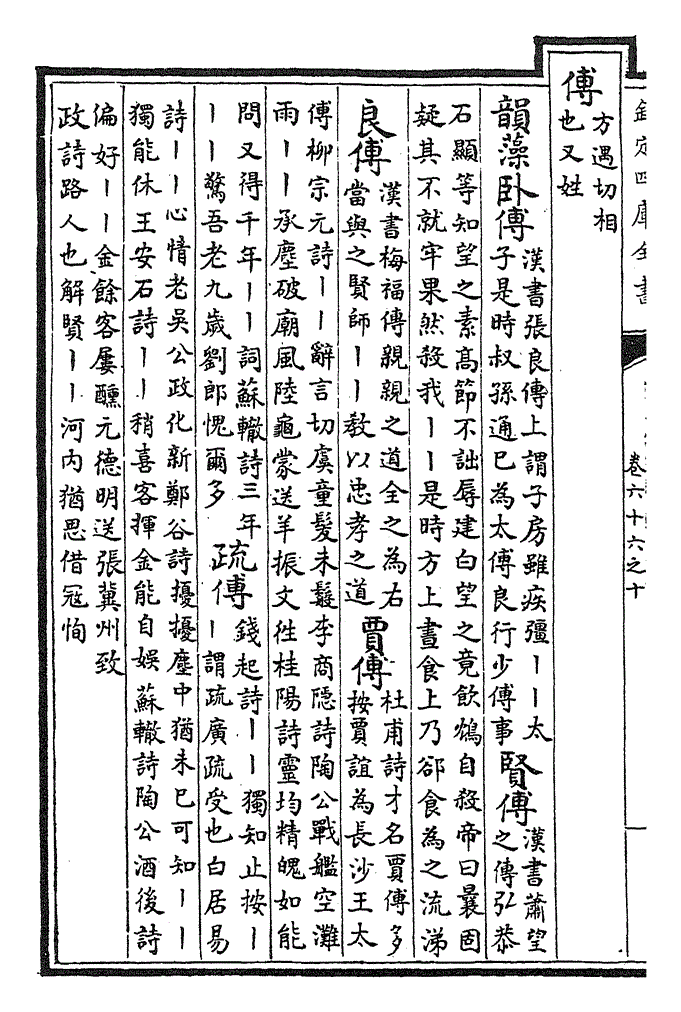 欽定四庫全書
卷六十六之十
傅
方遇切相
也又姓
韻藻臥傅
漢書張良傳上謂子房雖疾彊｜｜太
子是時叔孫通已為太傅良行少傅事
賢傅
漢書蕭望
之傳弘恭
石顯等知望之素高節不詘辱建白望之竟飲鴆自殺帝曰曩固
疑其不就牢果然殺我｜｜是時方上晝食上乃卻食為之流涕
良傅
漢書梅福傳親親之道全之為右
當與之賢師｜｜教以忠孝之道
賈傅
杜甫詩才名賈傅多
按賈誼為長沙王太
傅柳宗元詩｜｜辭言切虞童髮未李商隠詩陶公戰艦空灘
雨｜｜承塵破廟風陸龜蒙送羊振文徃桂陽詩靈均精魄如能
問又得千年｜｜詞蘇轍詩三年
｜｜驚吾老九歲劉郎愧爾多
疏傅
錢起詩｜｜獨知止按｜
｜謂疏廣疏受也白居易
詩｜｜心情老吳公政化新鄭谷詩擾擾塵中猶未已可知｜｜
獨能休王安石詩｜｜稍喜客揮金能自娛蘇轍詩陶公酒後詩
偏好｜｜金餘客屢醺元德明送張冀州致
政詩路人也解賢｜｜河内猶思借冦恂